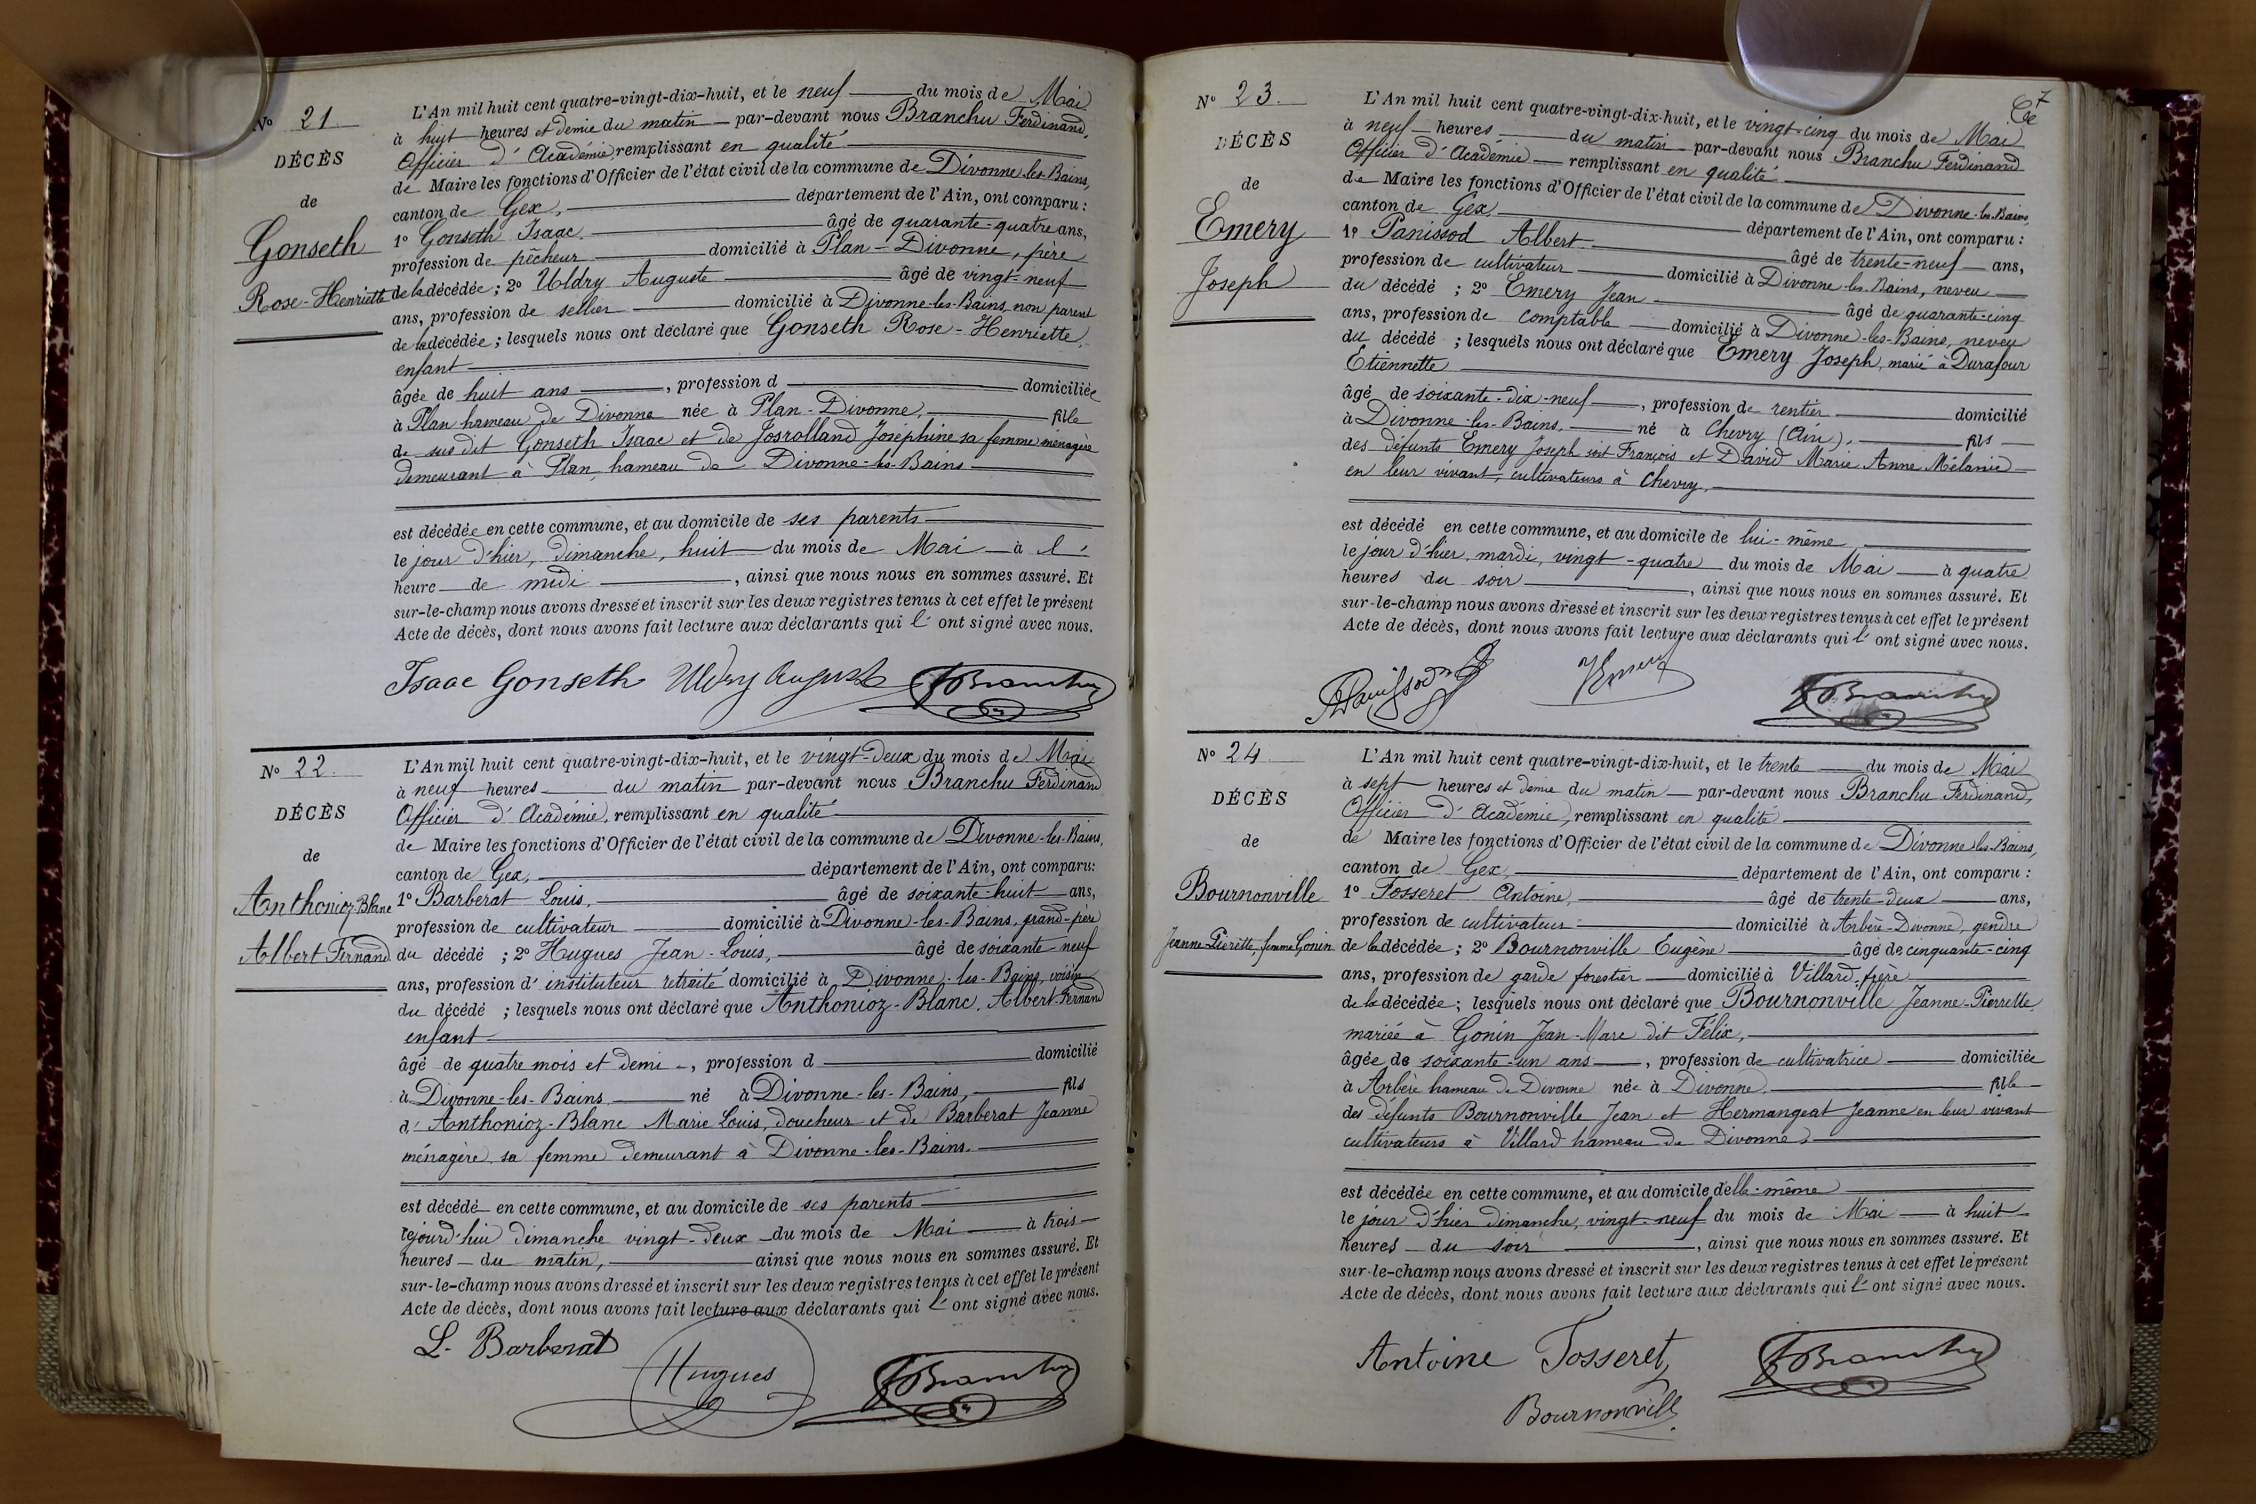 N° 21
DÉCÈS
de
Gonseth
Rose-Henriette
L'An mil huit cent quatre-vingt-dix-huit, et le neuf du mois de Mai
à huit heures et demie du matin par-devant nous Branchu Ferdinand,
Officier d'Académie, remplissant en qualité
de Maire les fonctions d'Officier de l'état civil de la commune de Divonne-les-Bains,
canton de Gex, département de l'Ain, ont comparu :
1° Gonseth Isaac, âgé de quarante-quatre ans,
profession de pêcheur domicilié à Plan-Divonne, père
de la décédée ; 2° Uldry Auguste âgé de vingt-neuf
ans, profession de sellier domicilié à Divonne-les-Bains, non parent
de la décédée ; lesquels nous ont déclaré que Gonseth Rose-Henriette,
enfant
âgée de huit ans, profession d domiciliée
à Plan hameau de Divonne née à Plan-Divonne, fille
de sus dit Gonseth Isaac et de Josrolland Joséphine sa femme ménagère
demeurant à Plan, hameau de Divonne-les-Bains
est décédée en cette commune, et au domicile de ses parents
le jour d'hier, dimanche, huit du mois de Mai à l'
heure de midi, ainsi que nous nous en sommes assuré. Et
sur-le-champ nous avons dressé et inscrit sur les deux registres tenus à cet effet le présent
Acte de décès, dont nous avons fait lecture aux déclarants qui l'ont signé avec nous.
Isaac Gonseth Uldry Auguste FBranchu
N° 22
DÉCÈS
de
Anthonioz-Blanc
Albert Fernand
L'An mil huit cent quatre-vingt-dix-huit, et le vingt-deux du mois de Mai
à neuf heures du matin par-devant nous Branchu Ferdinand
Officier d'Académie, remplissant en qualité
de Maire les fonctions d'Officier de l'état civil de la commune de Divonne-les-Bains,
canton de Gex, département de l'Ain, ont comparu:
1° Barberat Louis, âgé de soixante-huit ans,
profession de cultivateur domicilié à Divonne-les-Bains, grand-père
du décédé ; 2° Hugues Jean-Louis, âgé de soixante-neuf
ans, profession d'instituteur retraité domicilié à Divonne-les-Bains, voisin
du décédé ; lesquels nous ont déclaré que Anthonioz-Blanc, Albert-Fernand
enfant
âgé de quatre mois et demi, profession d domicilié
à Divonne-les-Bains né à Divonne-les-Bains, fils
d'Anthonioz-Blanc Marie Louis, doucheur et de Barberat Jeanne
ménagère, sa femme demeurant à Divonne-les-Bains.
est décédé en cette commune, et au domicile de ses parents
cejourd'hui dimanche vingt-deux du mois de Mai à trois
heures du matin, ainsi que nous nous en sommes assuré. Et
sur-le-champ nous avons dressé et inscrit sur les deux registres tenus à cet effet le présent
Acte de décès, dont nous avons fait lecture aux déclarants qui l'ont signé avec nous.
L. Barberat
Hugues FBranchu
7
N° 23
DÉCÈS
de
Emery
Joseph
L'An mil huit cent quatre-vingt-dix-huit, et le vingt-cinq du mois de Mai
à neuf heures du matin par-devant nous Branchu Ferdinand
Officier d'Académie remplissant en qualité
de Maire les fonctions d'Officier de l'état civil de la commune de Divonne-les-Bains,
canton de Gex, département de l'Ain, ont comparu :
1° Panissod Albert âgé de trente-neuf ans,
profession de cultivateur domicilié à Divonne-les-Bains, neveu
du décédé ; 2° Emery Jean âgé de quarante-cinq
ans, profession de comptable domicilié à Divonne-les-Bains, neveu
du décédé ; lesquels nous ont déclaré que Emery Joseph, marié à Darafour
Etiennette
âgé de soixante-dix-neuf, profession de rentier domicilié
à Divonne-les-Bains. né à Chevry (Ain), fils
des défunts Emery Joseph dit François et David Marie Anne Mélanie
en leur vivant, cultivateurs à Chevry,
est décédé en cette commune, et au domicile de lui-même
le jour d'hier, mardi, vingt-quatre du mois de Mai à quatre
heures du soir, ainsi que nous nous en sommes assuré. Et
sur-le-champ nous avons dressé et inscrit sur les deux registres tenus à cet effet le présent
Acte de décès, dont nous avons fait lecture aux déclarants qui l'ont signé avec nous.
APanissod JEmery FBranchu
N° 24
DÉCÈS
de
Bournonville
Jeanne-Pierette, femme Gonin
L'An mil huit cent quatre-vingt-dix-huit, et le trente du mois de Mai
à sept heures et demie du matin par-devant nous Branchu Ferdinand,
Officier d'Académie, remplissant en qualité
de Maire les fonctions d'Officier de l'état civil de la commune de Divonne-les-Bains,
canton de Gex, département de l'Ain, ont comparu :
1° Fosseret Antoine, âgé de trente-deux ans,
profession de cultivateur domicilié à Arbère-Divonne, gendre
de la décédée ; 2° Bournonville Eugène âgé de cinquante-cinq
ans, profession de garde forestier domicilié à Villard, frère
de la décédée ; lesquels nous ont déclaré que Bournonville Jeanne-Pierrette
mariée à Gonin Jean-Marc dit Félix,
âgée de soixante-un ans, profession de cultivatrice domiciliée
à Arbère hameau de Divonne née à Divonne fille
des défunts Bournonville Jean et Hermangeat Jeanne en leur vivant
cultivateurs à Villard hameau de Divonne
est décédée en cette commune, et au domicile d'elle-même
le jour d'hier dimanche, vingt-neuf du mois de Mai à huit
heures du soir, ainsi que nous nous en sommes assuré. Et
sur-le-champ nous avons dressé et inscrit sur les deux registres tenus à cet effet le présent
Acte de décès, dont nous avons fait lecture aux déclarants qui l'ont signé avec nous.
Antoine Fosseret FBranchu
Bournonville